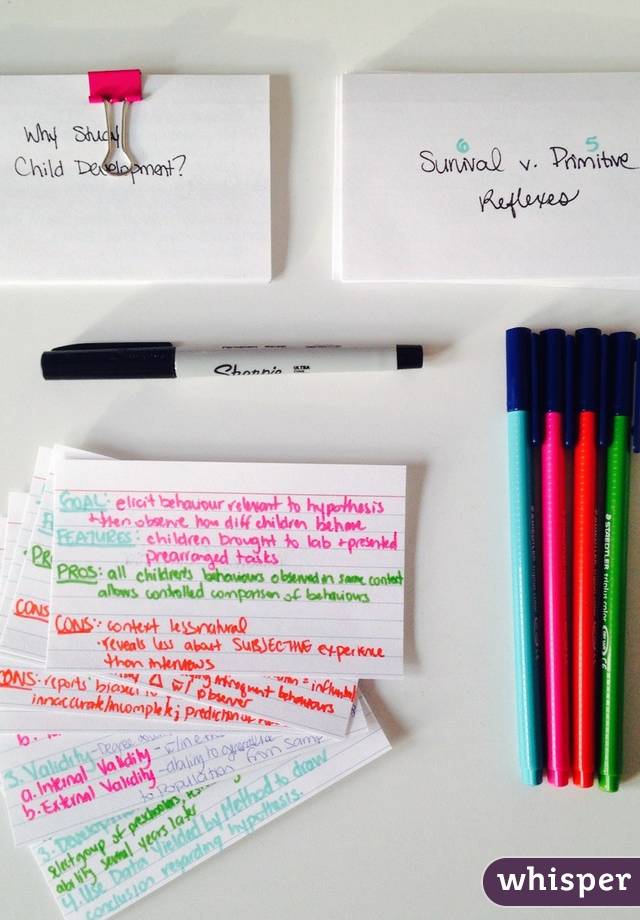 Why Study
Child Development?
6 5
Survival v. Primitive
Reflexes
Sharpie ULTRA
STAEDTLER triplus color
GOAL: elicit behaviour relevant to hypothesis
+ then observe how diff children behave
FEATURES: children brought to lab + presented
prearranged tasks
PROS: all children's behaviours observed in same context
allows controlled comparison of behaviours
CONS: context less natural
• reveals less about SUBJECTIVE experience
than interviews
PR
CONS
CONS: reports biased infrequent behaviours
observer
innaccurate/incomplete;
b.
3. Validity
a. Internal Validity
b. External Validity - ability to generalize
to population from sample
3.
select group of preschoolers
ability several years later
4. Use Data Yielded by Method to draw
conclusion regarding hypothesis.
whisper